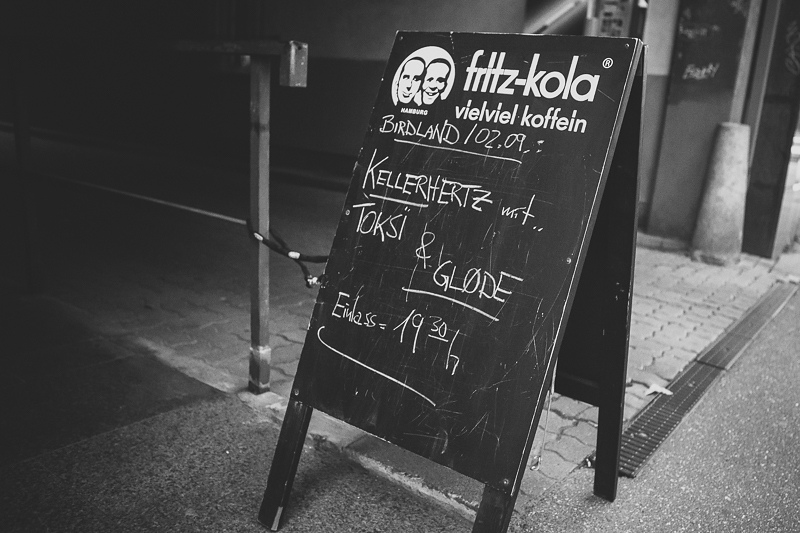 fritz-kola®
HAMBURG
vielviel koffein
BIRDLAND / 02.09.:
KELLERHERTZ mit..
TOKSi
&
GLØDE
Einlass = 19 30 h